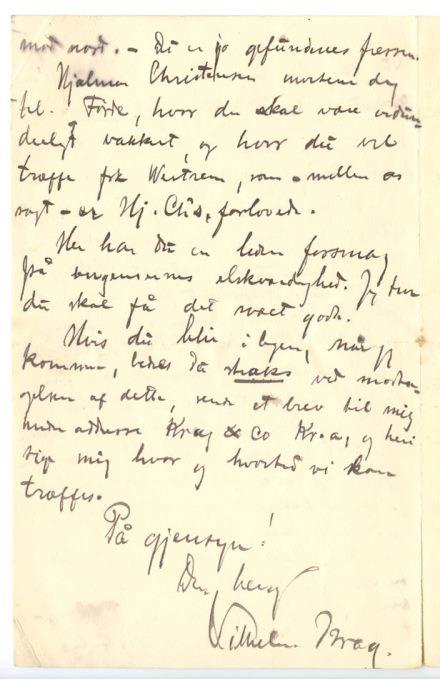 mod nord. – Du er jo gefundenes fressen.
Hjalmar Christensen mødte dig
til Førde, hvor du skal være vidun-
derligt vakkert, og hvor du vil
træffe frk , som – mellem os
sagt – er Hj. Chs. forlovede.
Her har du en liden forsmag
på bergensernes elskværdighed. Jeg tror
du skal få det svært godt.
Hvis du blir i byen, når jeg
kommer, bedes du straks ved modta-
gelsen af dette, sende et brev til mig
under adresse Krag & Co Kr.a, og heri
sige mig hvor og hvorhid vi kan
træffes.
På gjensyn!
Din heng
Vilhelm Krag.